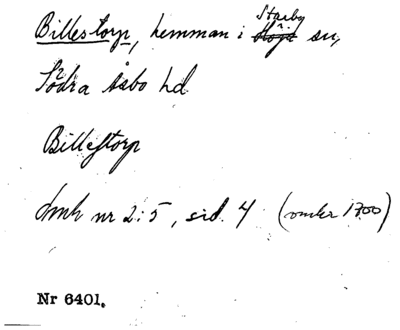 Billestorp, hemman i Starby sn,
Södra Åsbo hd
Billestorp
Lmh nr 2:5, sid. 4 (omkr 1700)
Nr 6401.